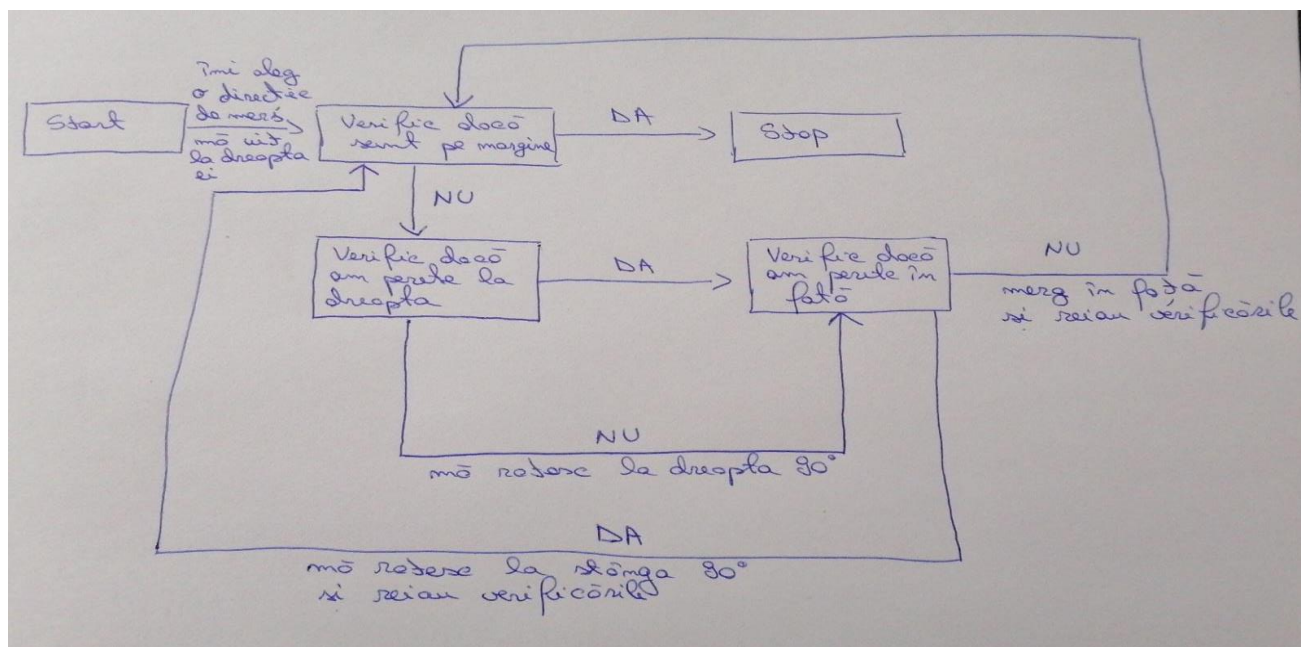 Start
îmi aleg
o direcție
de mers,
mă uit
la dreapta
ei
Verific dacă
sunt pe margine
DA
Stop
NU
Verific dacă
am perete la
dreapta
DA
Verific dacă
am perete în
față
NU
merg în față
și reiau verificările
NU
mă rotesc la dreapta 90°
DA
mă rotesc la stânga 90°
și reiau verificările